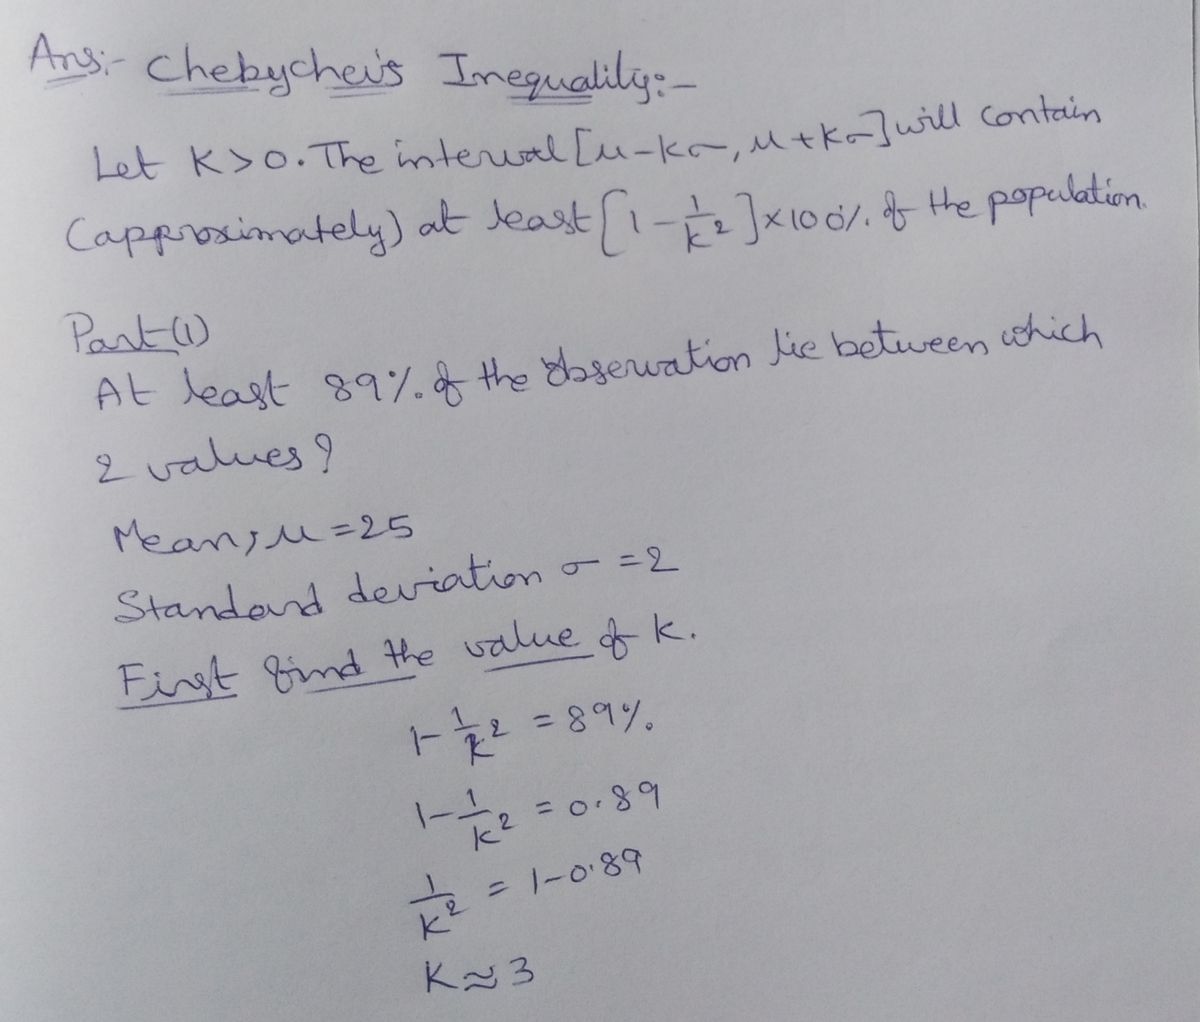 Ans:- Chebychev's Inequality:-
Let K>0. The interval [μ-kσ, μ+kσ] will contain
(approximately) at least [1 - 1/k²]×100% of the population.
Part (1)
At least 89% of the observation lie between which
2 values?
Mean, μ = 25
Standard deviation σ = 2
First find the value of k.
1 - 1/k² = 89%
1 - 1/k² = 0.89
1/k² = 1-0.89
K ≈ 3